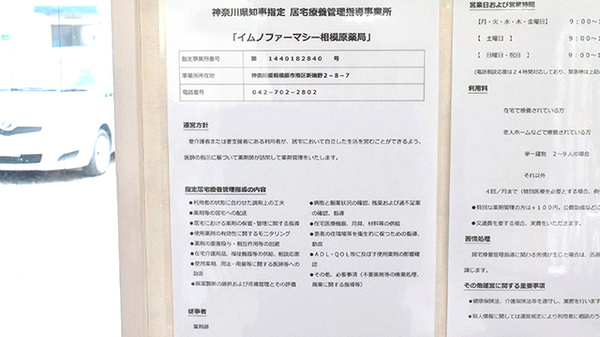 神奈川県知事指定 居宅療養管理指導事業所
「イムノファーマシー相模原薬局」
指定事業所番号 第 1440182840 号
事業所所在地 神奈川県相模原市南区新磯野2-8-7
電話番号 042-702-2802
運営方針
要介護者または要支援者にある利用者が、居宅において自立した生活を営むことができるよう、
医師の指示に基づいて薬剤師が訪問して薬剤管理をいたします。
指定居宅療養管理指導の内容
●利用者の状態に合わせた調剤上の工夫
●薬剤等の居宅への配送
●居宅における薬剤の保管・管理に関する指導
●使用薬剤の有効性に関するモニタリング
●薬剤の重複投与・相互作用等の回避
●在宅介護用品、福祉機器等の供給、相談応需
●使用薬剤、用法・用量等に関する医師等への
助言
●麻薬製剤の選択および疼痛管理とその評価
●病態と服薬状況の確認、残薬および過不足薬
の確認、指導
●在宅医療機器、用具、材料等の供給
●患者の住環境等を衛生的に保つための指導、
助言
●ADL・QOL等に及ぼす使用薬剤の影響確
認
●その他、必要事項（不要薬剤等の廃棄処理、
廃棄に関する指導等）
従事者
薬剤師
営業日および営業時間
【月・火・水・木・金曜日】 9:00～1
【 土曜日 】 9:00～
【 日曜日・祝日 】 9:00～1
（電話相談応需は24時間対応しており、緊急時は上記
利用料
在宅で療養されている方
老人ホームなどで療養されている方
単一建物 2～9人の場合
それ以外
4回／月まで（特別医療を必要とする場合、
●特別な薬剤管理の方は＋100円。公費助成など
●交通費を要する場合、実費をいただきます。
苦情処理
居宅療養管理指導に関わる苦情が生じた場合は、迅速
講じます。
その他運営に関する重要事項
●健康保険法、介護保険法等を遵守し、業務を行います
●個人情報に関しては運営規定により利用者に相談のう